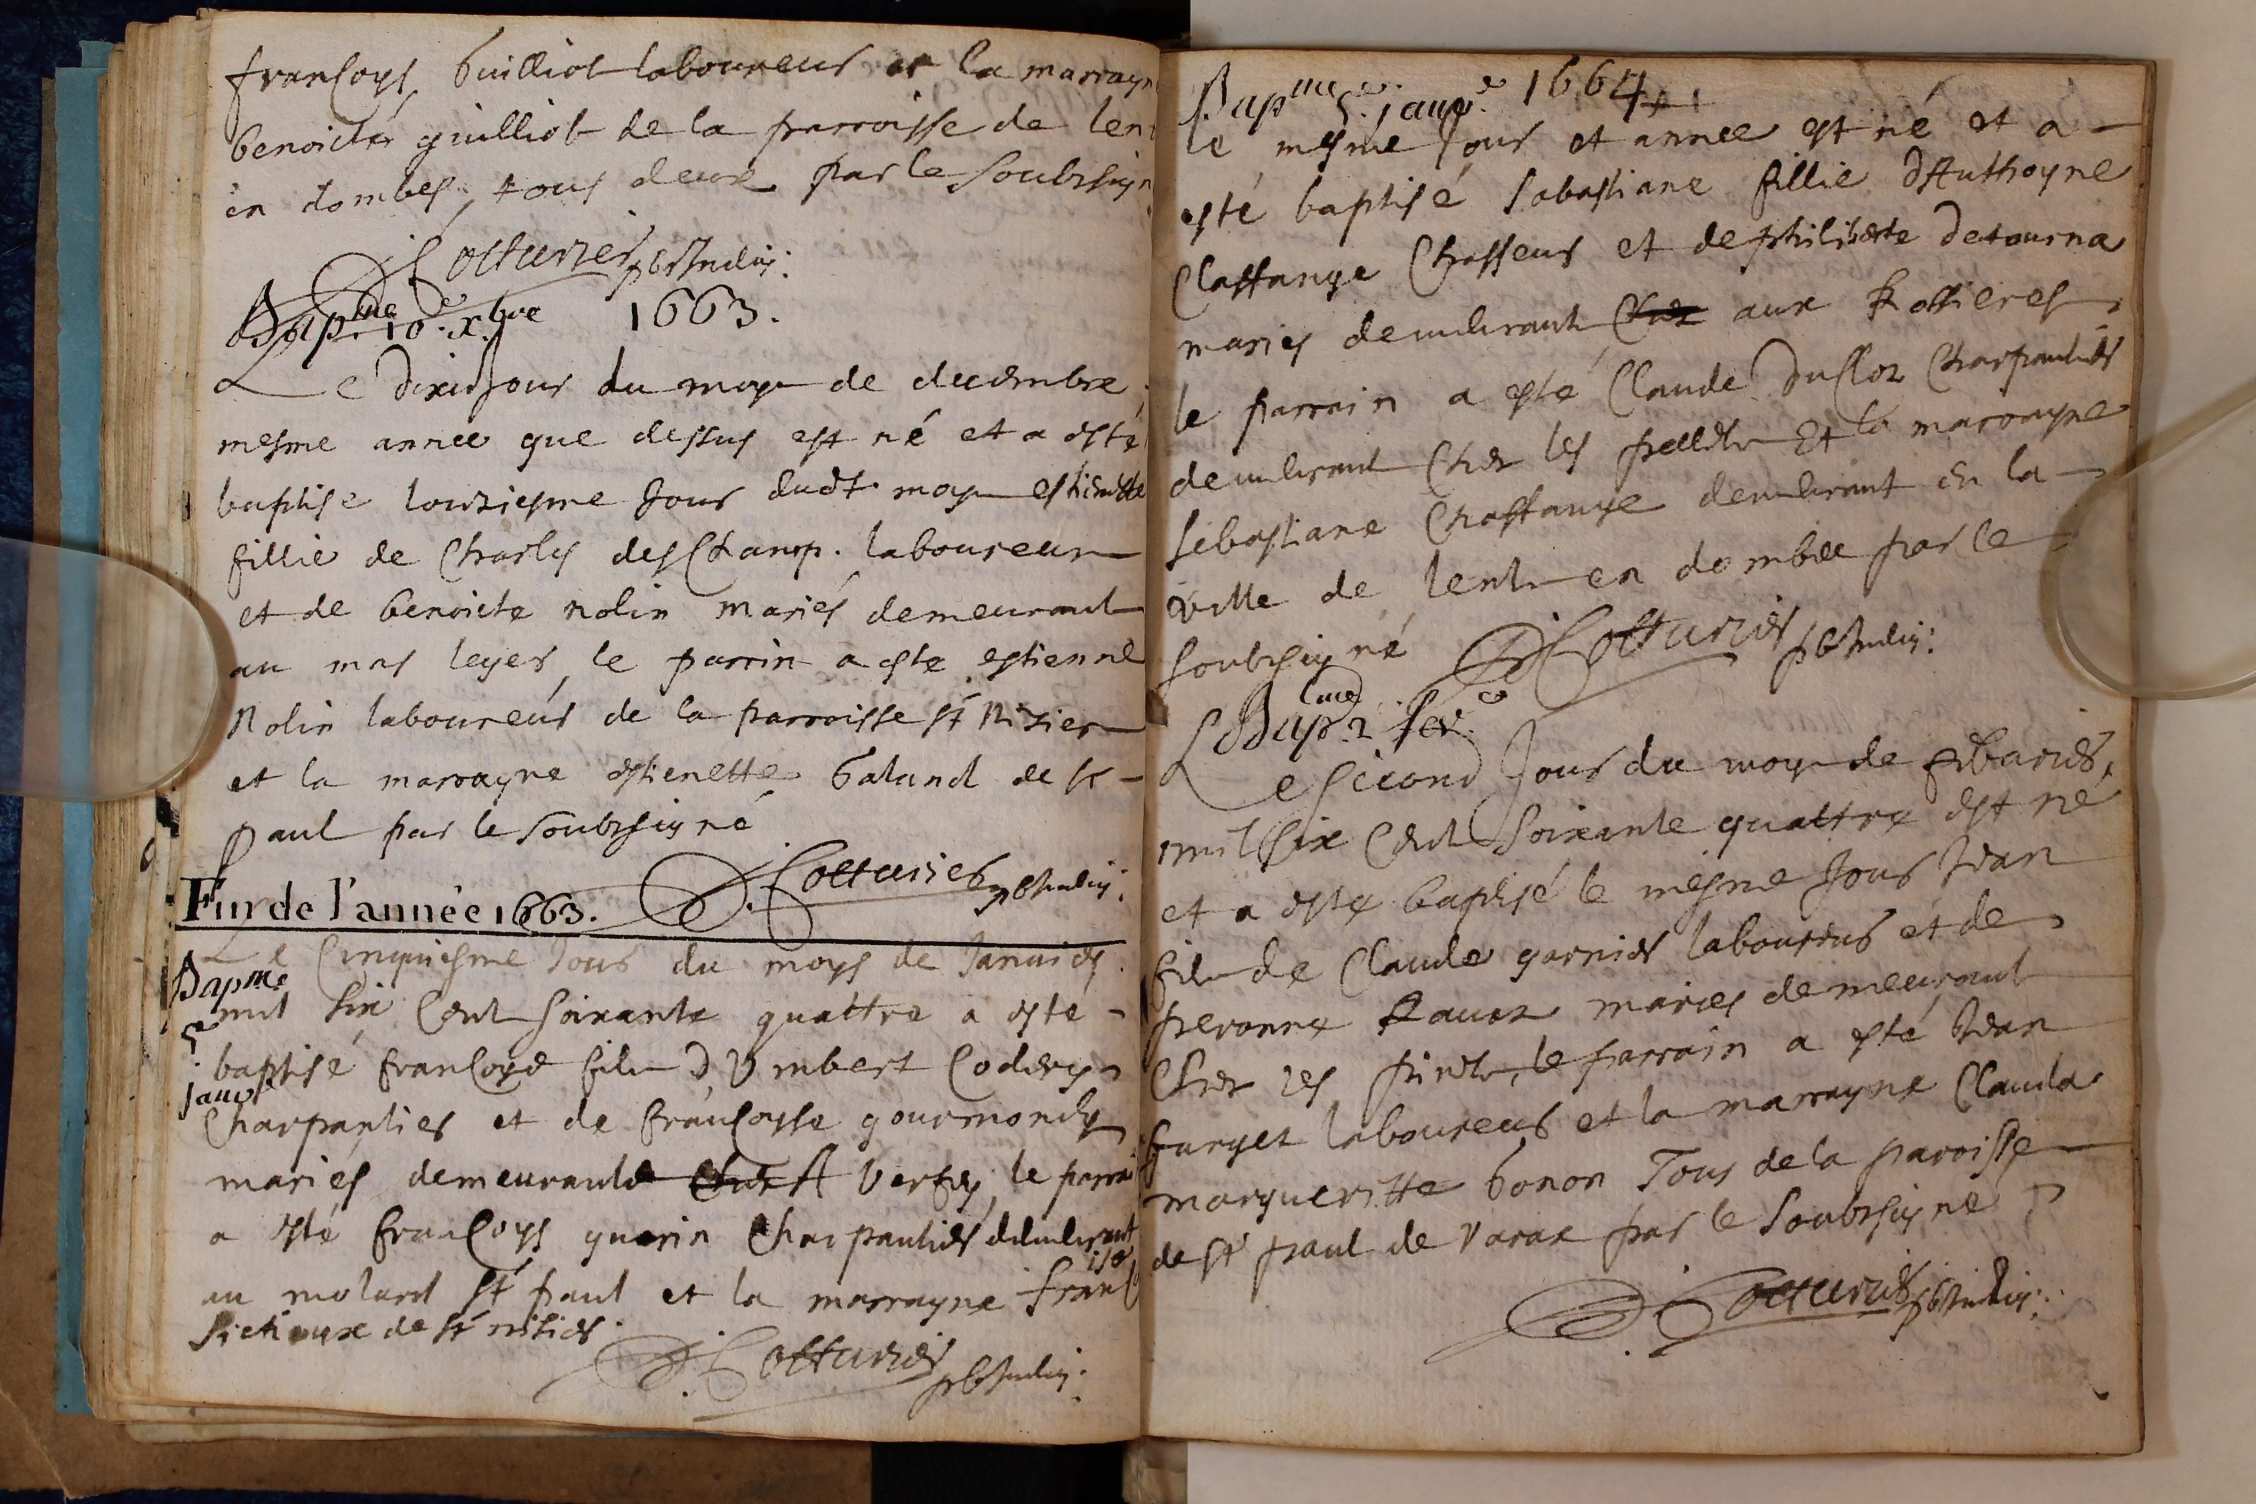 francoys Guilliot laboureur et la marrayn
benoicte guilliot de la parroisse de len
en dombes, tous deux par le soubzsign
Cotturier pbr Indig:
Bap.me 10.e x.bre 1663.
Le dixie Jour du moys de decembre
mesme annee que dessus est né et a esté
baptise lonziesme Jour dudt moys estiennette
fillie de Charles desChamp. laboureur
et de benoicte nolin mariés demeurant
au mas leyer, le parrin a este estienne
Nolin laboureur de la parroisse st Nizier
et la marrayne estienette Galand de st
paul par le soubzsigné
Cotturier pbr Indig:
Fin de l'année 1663.
Le Cinquiesme Jour du moys de Januier
Bapme
mil six Cent soixante quattre a este
5e
baptisé francoys filz d'Vmbert
janvr
Charpantier et de francoysse
mariés demeurants Chez A le parrai
a esté francoys guerin Charpantier demeurant
au molard st paul et la marrayne francoise
de st nisier.
Cotturier pbr Indig:
Bapme 5e janve 1664
le mesme Jour et annee est né et a
esté baptisé sabastiane fillie d'Anthoyne
Chaffange Chasseur et de philiberte
mariés demeurant Chez aux
le parrain a esté Claude Duclos Charpantier
demeurant Chez les Et la marrayne
sebastiane Chaffange demeurant en la
ville de lent en dombee par le
soubsigné Cotturier pbr Indig:
Bapme 2 fere
Le second Jour du moys de febvrier
mil six Cent soixante quattre est né
et a esté baptisé le mesme Jour Jean
filz de Claude garnier laboureur et de
peronne mariés demeurant
Chez les le parrain a esté Jean
furget laboureur et la marrayne Clauda
margueritte bonon Tous de la paroisse
de st paul de varax par le soubzsigné
Cotturier pbr Indig: